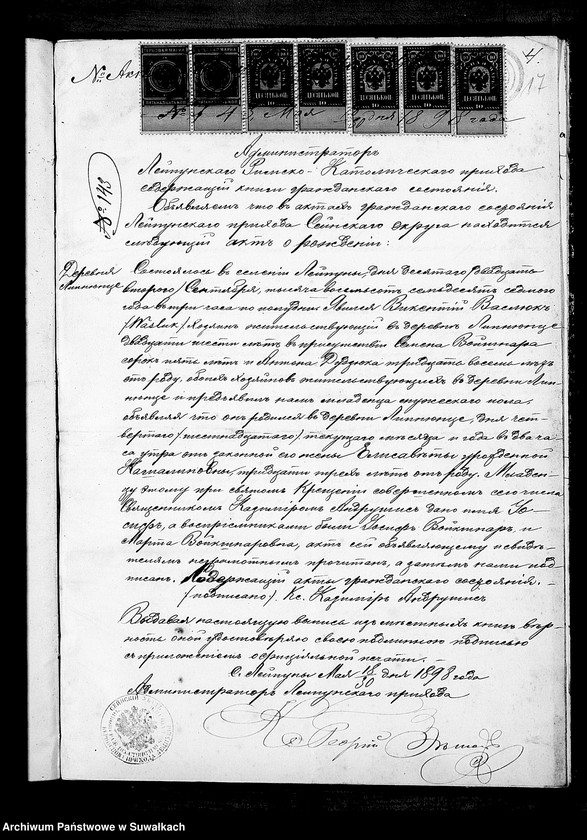 № Ак
4.
17
№ 4 Мая дня 1898 года
№ 143
Администраторъ
Лейпунскаго Римско-Католическаго прихода
содержащій книги гражданскаго состоянія.
Объявляемъ что въ актахъ гражданскаго состоянія
Лейпунскаго прихода Сейнскаго округа находится
слѣдующій актъ о рожденіи:
Деревня
Состоялось въ селеніи Лейпуны, дня десятаго /двадцать
второго/ Сентября, тысяча восемьсотъ семьдесятъ седьмого
года въ три часа по полудни Явился Викентій Васлюкъ
/Wasluk/ Хозяинъ жительствующій въ деревнѣ
двадцати шести лѣтъ въ присутствіи Семена Войткнара
сорокъ пять лѣтъ и Антона тридцати восьми лѣтъ
отъ роду, обоихъ хозяевъ жительствующихъ въ деревнѣ
и предъявилъ намъ младенца мужескаго пола,
объявляя что онъ родился въ деревнѣ дня чет-
вертого /шестнадцатаго/ текущаго мѣсяца и года въ два ча-
са утра отъ законной его жены Елисаветы урожденной
тридцати трехъ лѣтъ отъ роду. Младен-
цу этому при святомъ Крещеніи совершенномъ сего числа
Священникомъ Казимиромъ Андрушисъ дано имя Іо-
сифъ, а воспріемниками были Іосифъ Войткнаръ, и
Марта Войткнаровна, актъ сей объявляющему и свидѣ-
телямъ неграмотнымъ прочитанъ, а затѣмъ нами под-
писанъ. Содержащій акты гражданскаго состоянія. -
/подписано/. Кс. Казимиръ Андрушисъ
Выдавая настоящую выпись изъ мѣстныхъ книгъ вѣр-
ность оной удостовѣряю своею подлинною подписью
съ приложеніемъ оффиціальной печати.
С. Лейпуны Мая 18/30 дня 1898 года
Администраторъ Лейпунскаго прихода
Кс Георгій
Archiwum Państwowe w Suwałkach